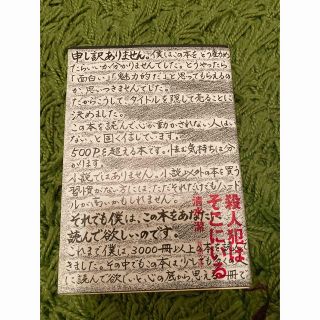 申し訳ありません。僕はこの本をどう勧め
たらいいか分かりませんでした。どうやったら
「面白い」「魅力的だ」と思ってもらえるの
か、思いつきませんでした。
だからこうして、タイトルを隠して売ることに
決めました。
この本を読んで心が動かされない人はい
ない、と固く信じています。
500Pを超える本です。怯む気持ちは分
小説ではありません。小説以外の本を買う
習慣がない方には、ただそれだけでもハード
ルが高いかもしれません。
それでも僕は、この本をあなた
読んで欲しいのです。
これまで僕は3000冊以上の本を
きました。その中でもこの本は
心の底から思える一冊で
殺人犯は
そこにいる
清水潔